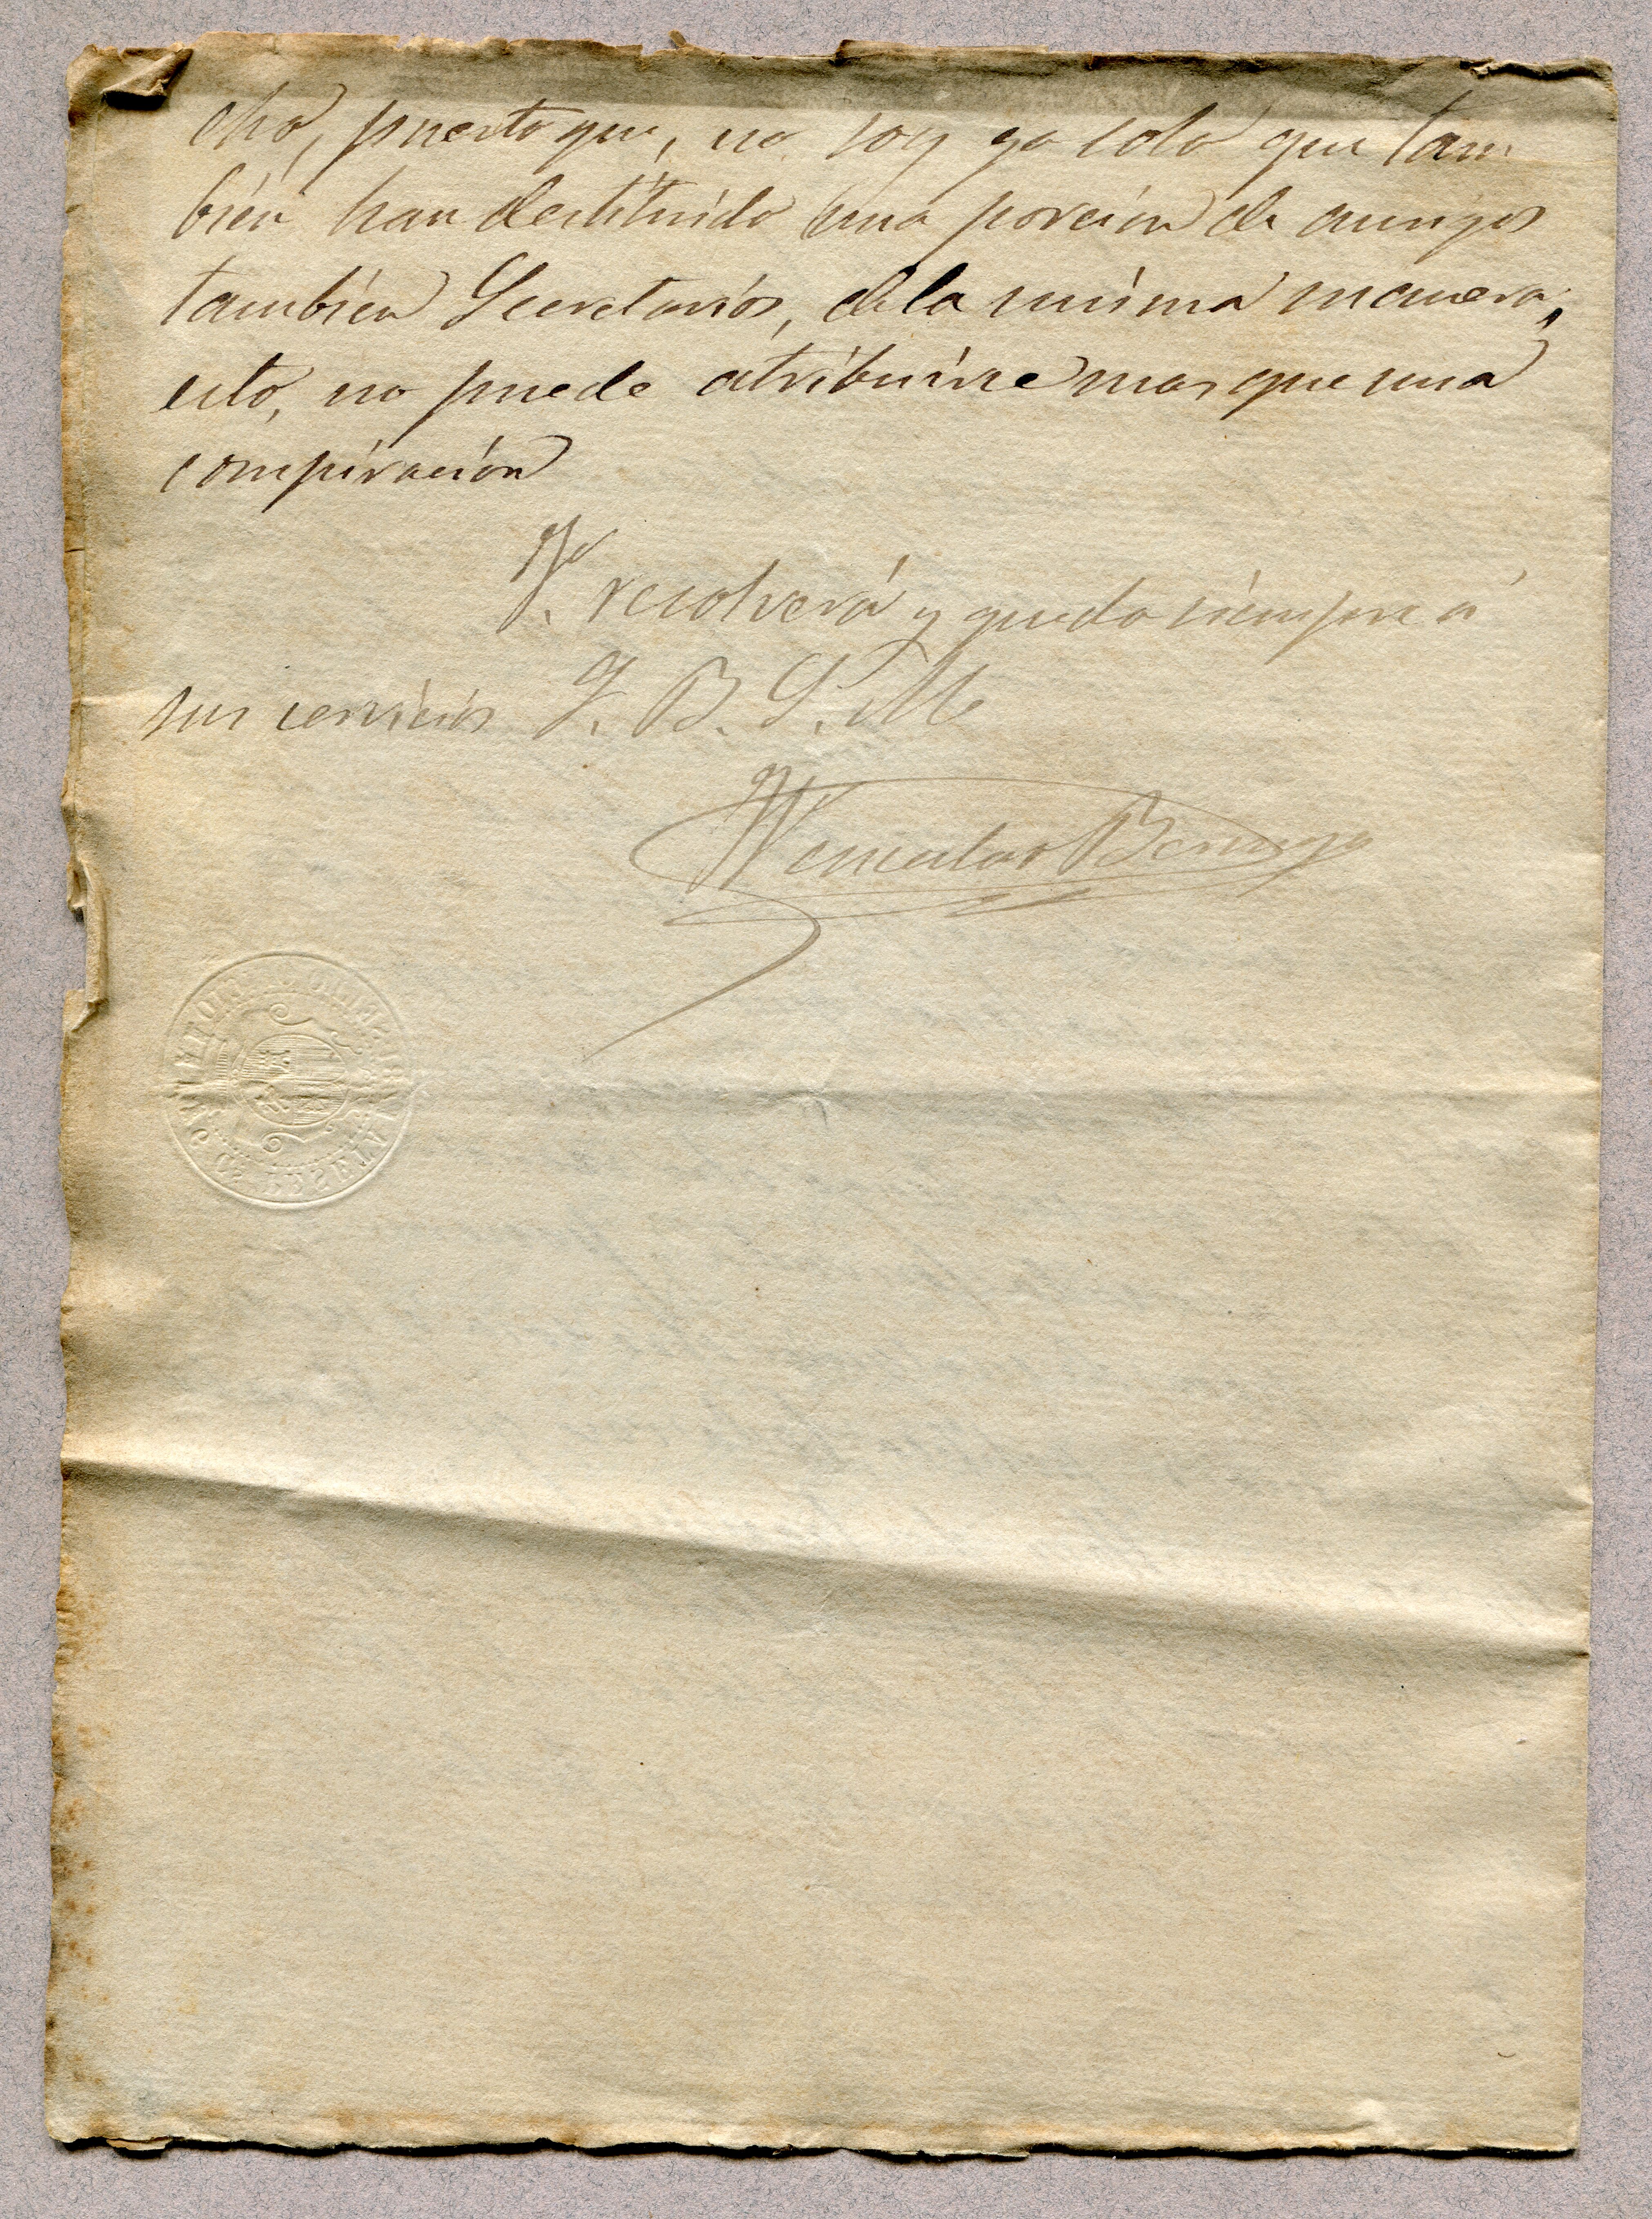 cho, puesto que, no soy yo solo que tam
bien han destituido una porcion de amigos
tambien Secretarios, de la misma manera;
esto, no puede atribuirse mas que una
conspiración
V. resolverá y queda siempre á
sus servicios Q. B. S. M
Wenceslao Berrugo